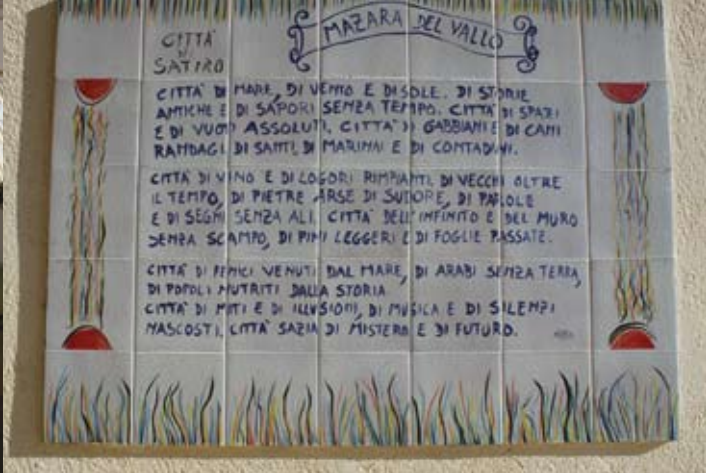 MAZARA DEL VALLO
CITTÀ
DI
SATIRO
CITTÀ DI MARE, DI VENTO E DI SOLE. DI STORIE
ANTICHE E DI SAPORI SENZA TEMPO. CITTÀ DI SPAZI
E DI VUOTI ASSOLUTI. CITTÀ DI GABBIANI E DI CANI
RANDAGI. DI SANTI, DI MARINAI E DI CONTADINI.
CITTÀ DI VINO E DI LOGORI RIMPIANTI, DI VECCHI OLTRE
IL TEMPO, DI PIETRE ARSE DI SUDORE, DI PAROLE
E DI SEGNI SENZA ALI. CITTÀ DELL'INFINITO E DEL MURO
SENZA SCAMPO, DI PINI LEGGERI E DI FOGLIE PASSATE.
CITTÀ DI FENICI VENUTI DAL MARE, DI ARABI SENZA TERRA,
DI POPOLI NUTRITI DALLA STORIA
CITTÀ DI MITI E DI ILLUSIONI, DI MUSICA E DI SILENZI
NASCOSTI. CITTÀ SAZIA DI MISTERO E DI FUTURO.